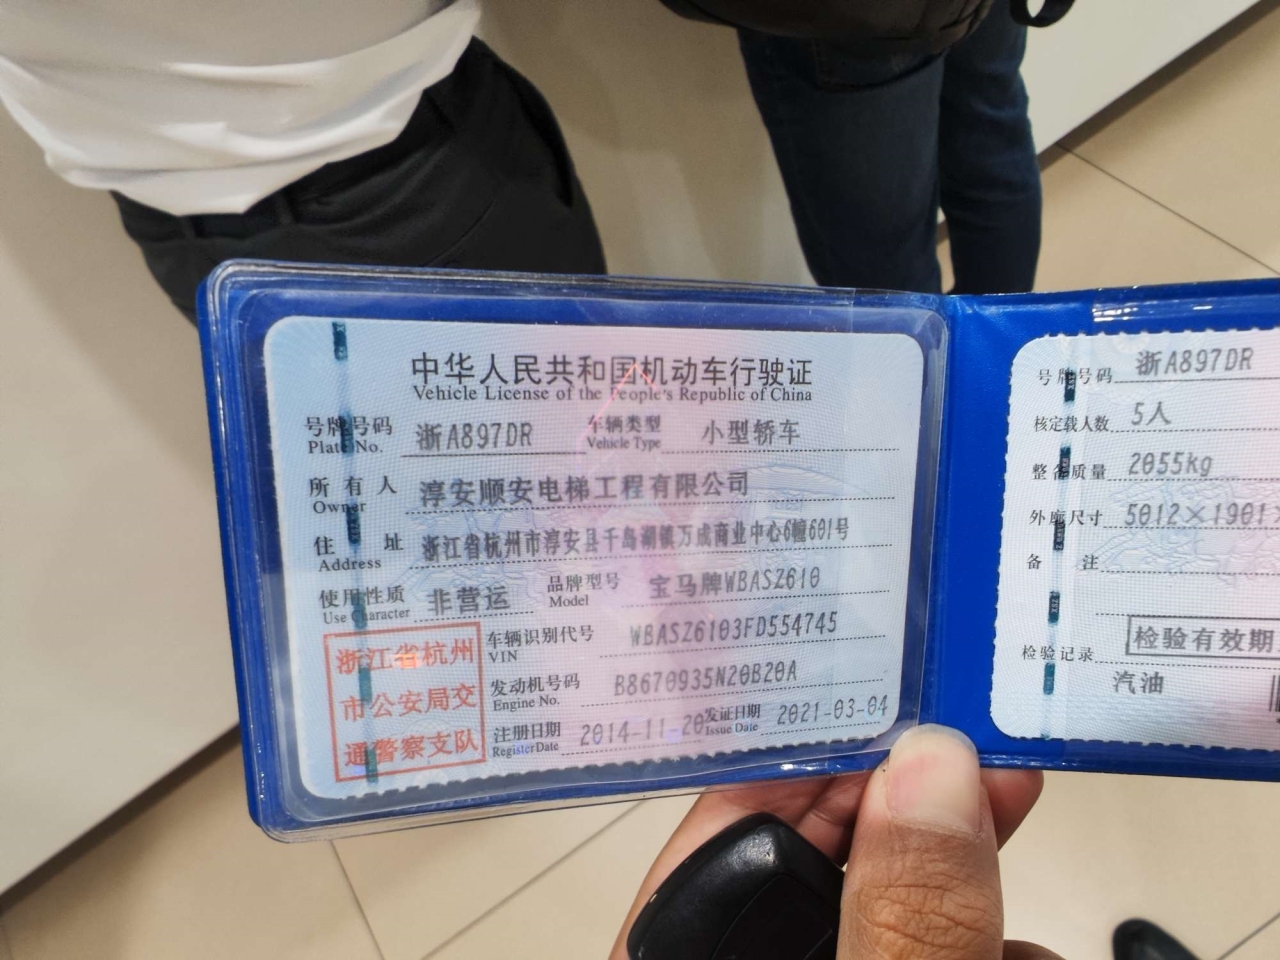 中华人民共和国机动车行驶证
Vehicle License of the People's Republic of China
号牌号码 浙A897DR 车辆类型 小型轿车
Plate No. Vehicle Type
所有人 淳安顺安电梯工程有限公司
Owner
住址 浙江省杭州市淳安县千岛湖镇万成商业中心6幢601号
Address
使用性质 非营运 品牌型号 宝马牌WBASZ610
Use Character Model
浙江省杭州
市公安局交
通警察支队
车辆识别代号 WBASZ6103FD554745
VIN
发动机号码 B8670935N20B20A
Engine No.
注册日期 2014-11-20 发证日期 2021-03-04
Register Date Issue Date
号牌号码 浙A897DR
核定载人数 5人
整备质量 2055kg
外廓尺寸 5012×1901
备注
检验有效期
检验记录
汽油